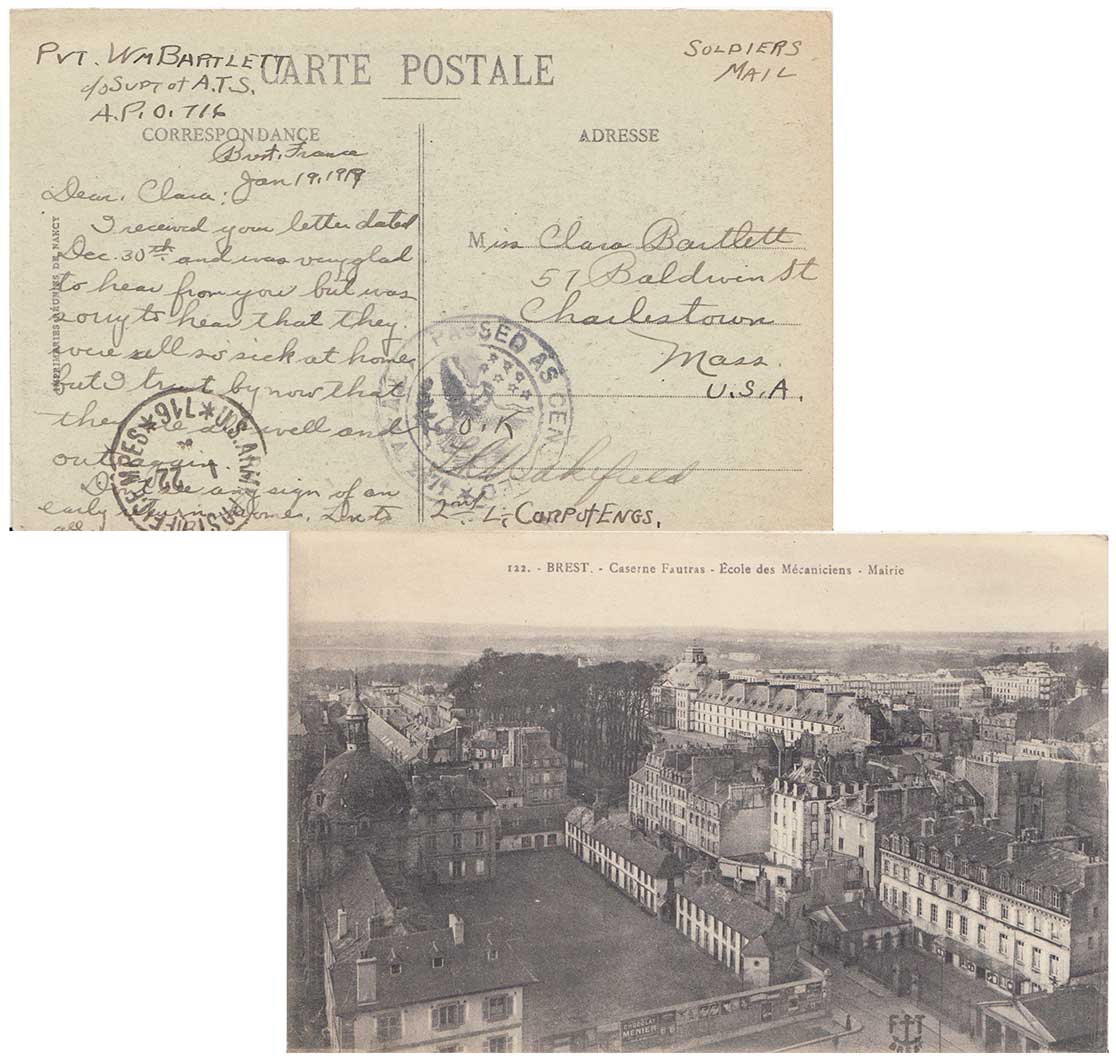 PVT. WM BARTLETT
c/o SUPT of A.T.S.
A.P.O. 716
CARTE POSTALE
SOLDIERS
MAIL
CORRESPONDANCE
ADRESSE
Brest, France
Jan 19, 1919
Dear, Clara:
I received your letter dated
Dec. 30th and was very glad
to hear from you but was
sorry to hear that they
were all so sick at home
but I trust by now that
they are all well and
out again.
Don't see any sign of an
early
all
IMPRIMERIES RÉUNIES DE NANCY
Miss Clara Bartlett
57 Baldwin St
Charlestown
Mass.
U.S.A.
PASSED AS CENSORED
O.K
2nd L. CORP of ENGS.
U.S. ARMY POSTOFFICE
*716*
1
22
122. - BREST. - Caserne Fautras - École des Mécaniciens - Mairie
CHOCOLAT
MENIER
F T
BREST